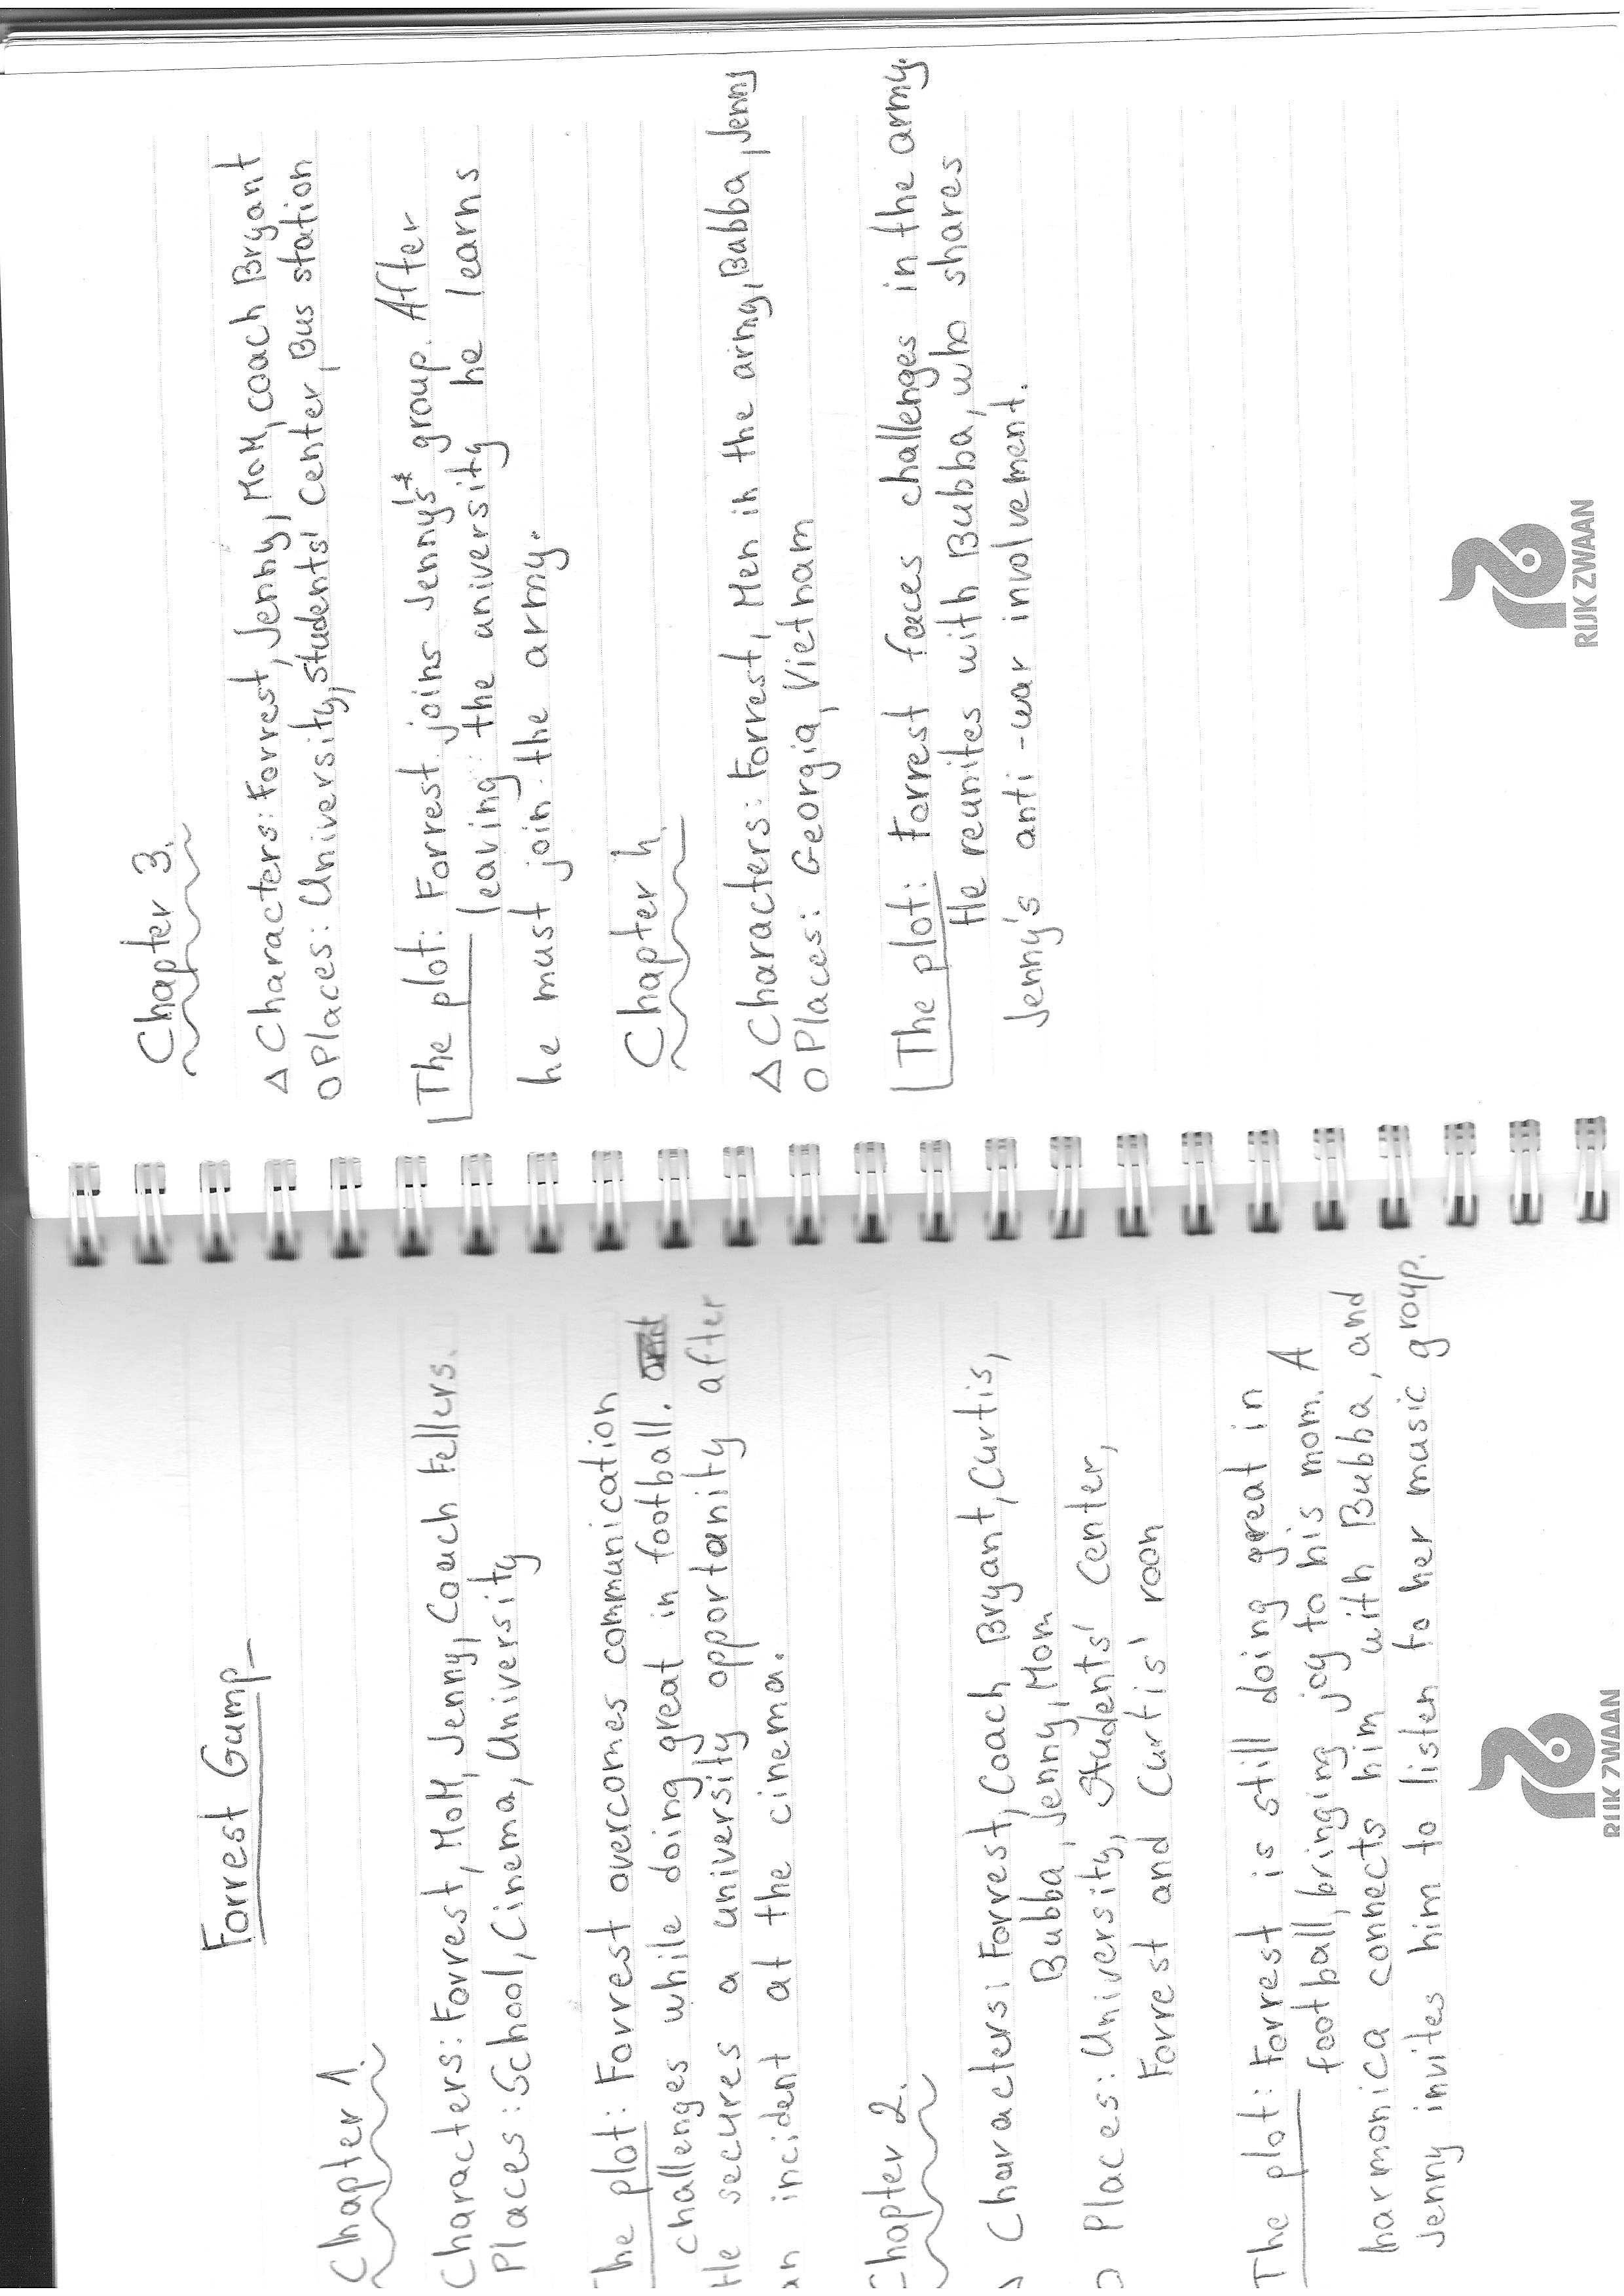 Forrest Gump
Chapter 1.
Characters: Forrest, MoM, Jenny, Coach Fellers.
Places: School, Cinema, University
The plot: Forrest overcomes communication
challenges while doing great in football.
He secures a university opportunity after
an incident at the cinema.
Chapter 2.
Characters: Forrest, Coach Bryant, Curtis,
Bubba, Jenny, Mom
Places: University, Students' Center,
Forrest and Curtis' room
The plot: Forrest is still doing great in
football, bringing joy to his mom. A
harmonica connects him with Bubba, and
Jenny invites him to listen to her music group.
RIJK ZWAAN
Chapter 3.
Δ Characters: Forrest, Jenny, MoM, Coach Bryant
O Places: University, Students' Center, Bus station
The plot: Forrest joins Jenny's* group. After
leaving the university he learns
he must join the army.
Chapter 4.
Δ Characters: Forrest, Men in the army, Bubba, Jenny
O Places: Georgia, Vietnam
The plot: Forrest faces challenges in the army.
He reunites with Bubba, who shares
Jenny's anti-war involvement.
RIJK ZWAAN